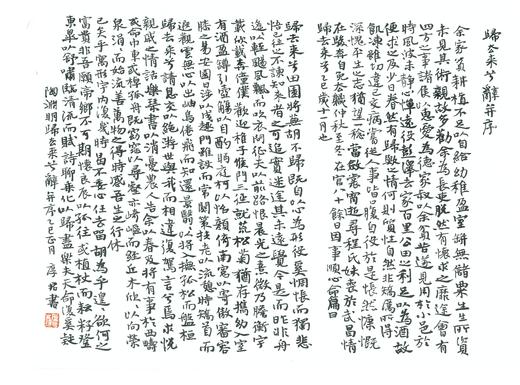 歸去來兮辭并序
余家貧耕植不足以自給幼稚盈室缾無儲粟生生所資
未見其術親故多勸余為長吏脫然有懷求之靡途會有
四方之事諸侯以惠愛為德家叔以余貧苦遂見用於小邑於
時風波未靜心憚遠役彭澤去家百里公田之利足以為酒故
便求之及少日眷然有歸歟之情何則質性自然非矯厲所得
飢凍雖切違己交病嘗從人事皆口腹自役於是悵然慷慨
深愧平生之志猶望一稔當斂裳宵逝尋程氏妹喪於武昌情
在駿奔自免去職仲秋至冬在官八十餘日因事順心命篇曰
歸去來兮乙巳歲十一月
歸去來兮田園將蕪胡不歸既自以心為形役奚惆悵而獨悲
悟已往之不諫知來者之可追實迷途其未遠覺今是而昨非舟
遙々以輕颺風飄々而吹衣問征夫以前路恨晨光之熹微乃瞻衡宇
載欣載奔僮僕歡迎稚子候門三徑就荒松菊猶存攜幼入室
有酒盈罇引壺觴以自酌眄庭柯以怡顏倚南窗以寄傲審容
膝之易安園日涉以成趣門雖設而常關策扶老以流憩時矯首而
遐觀雲無心以出岫鳥倦飛而知還景翳々以將入撫孤松而盤桓
歸去來兮請息交以絕游世與我而相違復駕言兮焉求悅
親戚之情話樂琴書以消憂農人告余以春及將有事於西疇
或命巾車或棹孤舟既窈窕以尋壑亦崎嶇而經丘木欣々以向榮
泉涓々而始流善萬物之得時感吾生之行休
已矣乎寓形宇內復幾時曷不委心任去留胡為乎遑々欲何之
富貴非吾願帝鄉不可期懷良辰以孤往或植杖而耘耔登
東皋以舒嘯臨清流而賦詩聊乘化以歸盡樂夫天命復奚疑
陶淵明歸去來兮辭并序 乙巳正月 書